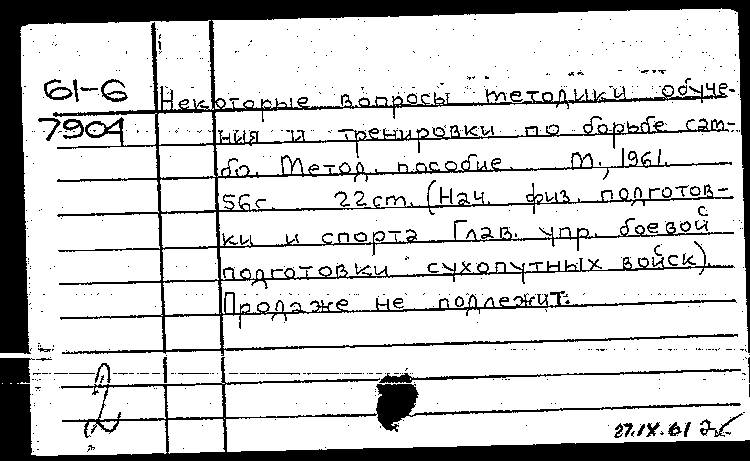 61-6
7904
Некоторые вопросы методики обуче-
ния и тренировки по борьбе сам-
бо. Метод. пособие. М., 1961.
56с. 22см. (Нач. физ. подготов-
ки и спорта Глав. упр. боевой
подготовки сухопутных войск).
Продаже не подлежит.
2
27.IX.61